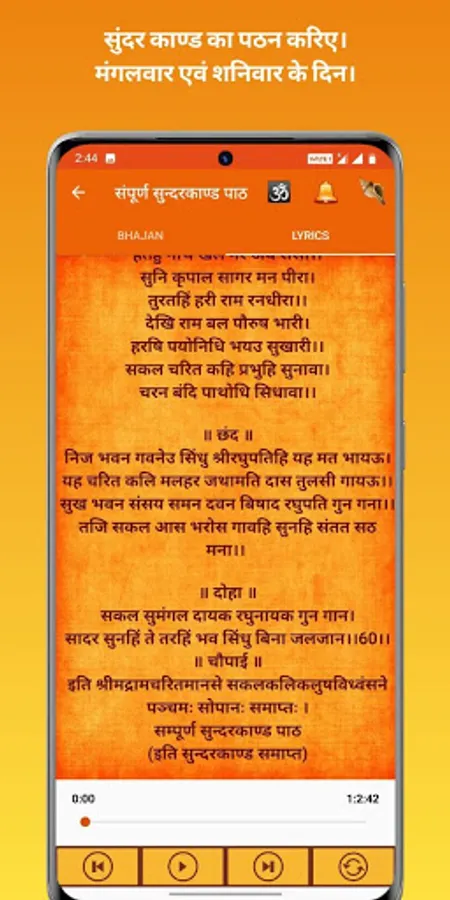 सुंदर काण्ड का पठन करिए।
मंगलवार एवं शनिवार के दिन।
2:44
संपूर्ण सुन्दरकाण्ड पाठ
BHAJAN LYRICS
सुनि कृपाल सागर मन पीरा।
तुरतहिं हरी राम रनधीरा।।
देखि राम बल पौरुष भारी।
हरषि पयोनिधि भयउ सुखारी।।
सकल चरित कहि प्रभुहि सुनावा।
चरन बंदि पाथोधि सिधावा।।
॥ छंद ॥
निज भवन गवनेउ सिंधु श्रीरघुपतिहि यह मत भायऊ।
यह चरित कलि मलहर जथामति दास तुलसी गायऊ।।
सुख भवन संसय समन दवन बिषाद रघुपति गुन गना।।
तजि सकल आस भरोस गावहि सुनहि संतत सठ
मना।।
॥ दोहा ॥
सकल सुमंगल दायक रघुनायक गुन गान।
सादर सुनहिं ते तरहिं भव सिंधु बिना जलजान।।60।।
॥ चौपाई ॥
इति श्रीमद्रामचरितमानसे सकलकलिकलुषविध्वंसने
पञ्चमः सोपानः समाप्तः ।
सम्पूर्ण सुन्दरकाण्ड पाठ
(इति सुन्दरकाण्ड समाप्त)
0:00 1:2:42